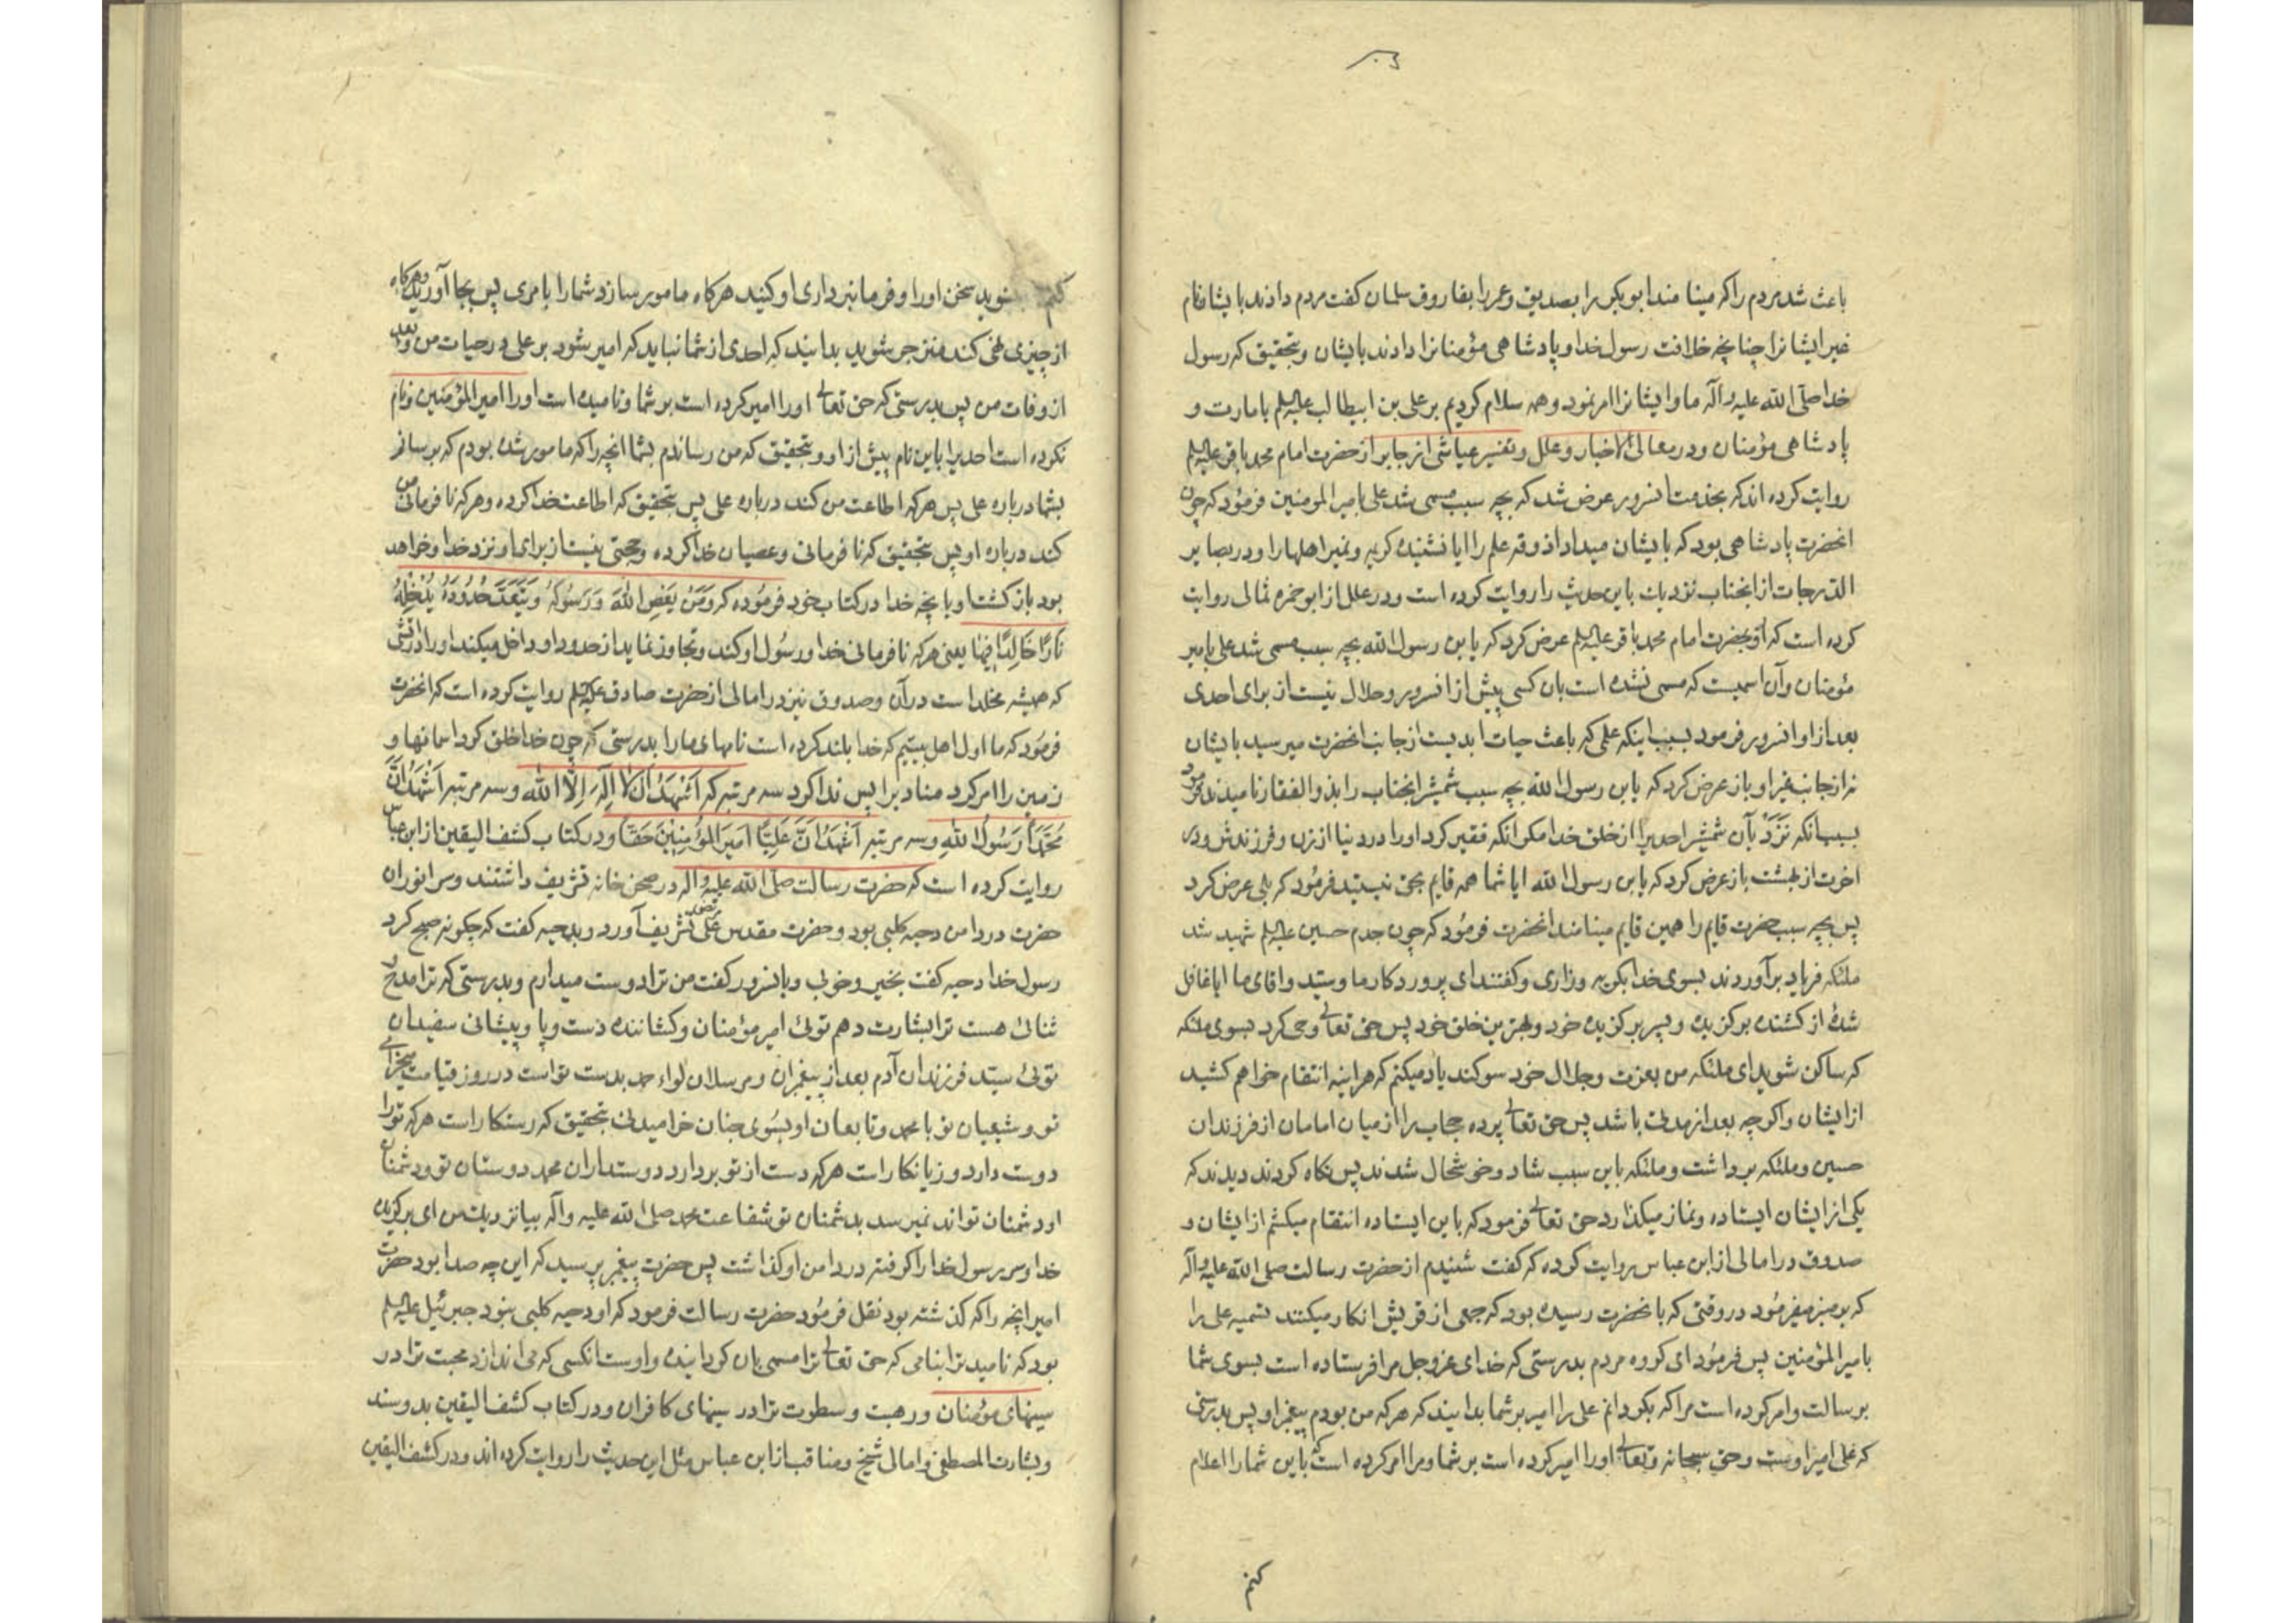 باعث شد مردم را که مینامند ابوبکر را بصدیق و عمر را بفاروق سلمان کفت مردم دادند بایشان نام
غیر ایشانرا چنانچه خلافت رسول خدا و پادشاهی مؤمنانرا دادند بایشان و بتحقیق که رسول
خدا صلّی الله علیه وآله ما و ایشانرا امر نمود و همه سلام کردیم بر علی بن ابیطالب علیه‌السلم بامارت و
پادشاهی مؤمنان و در معانی الاخبار و علل و تفسیر عیاشی از جابر از حضرت امام محمد باقر علیه‌السلم
روایت کرده اند که بخدمت انسرور عرض شد که بچه سبب مسمی شد علی بامیر المومنین فرمود که چون
انحضرت پادشاهی بود که بایشان میداد اذوقه علم را ایا نشنیده کریمه و نمیر اهلها را و در بصایر
الدرجات از انجناب نزدیک باین حدیث را روایت کرده است و در علل از ابوحمزه ثمالی روایت
کرده است که او بحضرت امام محمد باقر علیه‌السلم عرض کرد که یابن رسول الله بچه سبب مسمی شد علی بامیر
مؤمنان و آن اسمیست که مسمی نشده است بان کسی پیش از انسرور و حلال نیست از برای احدی
بعد از او انسرور فرمود بسبب اینکه علمی که باعث حیات ابدیست از جانب انحضرت میرسید بایشان
نه از جانب غیر او باز عرض کرد که یابن رسول الله بچه سبب شمشیر انجناب را بذوالفقار نامیدند فرمود
بسبب انکه نَزَدْ بآن شمشیر احدیرا از خلق خدا مکر انکه فقیر کرد او را در دنیا از زن و فرزندش و در
اخرت از بهشت باز عرض کرد که یابن رسول الله ایا شما همه قایم بحق نیستید فرمود که بلی عرض کرد
پس بچه سبب حضرت قایم را همین قایم مینامند انحضرت فرمود که چون جدم حسین علیه‌السلم شهید شد
ملئکه فریاد برآوردند بسوی خدا بکریه و زاری و کفتند ای پروردکار ما و سیّد و اقای ما ایا غافل
شدهٔ از کشنده برکزیده و پسر برکزیده خود و بهترین خلق خود پس حق تعالی وحی کرد بسوی ملئکه
که ساکن شوید ای ملئکه من بعزت و جلال خود سوکند یاد میکنم که هراینه انتقام خواهم کشید
از ایشان واکرچه بعد از مدتی باشد پس حق تعالی پرده حجاب را از میان امامان از فرزندان
حسین و ملئکه برداشت و ملئکه باین سبب شاد و خوشحال شدند پس نکاه کردند دیدند که
یکی از ایشان ایستاده و نماز میکذارد حق تعالی فرمود که باین ایستاده انتقام میکشم از ایشان و
صدوق در امالی از ابن عباس روایت کرده که کفت شنیدم از حضرت رسالت صلی الله علیه وآله
که بر منبر میفرمود در وقتی که بانحضرت رسیده بود که جمعی از قریش انکار میکنند تسمیه علی را
بامیر المؤمنین پس فرمود ای کروه مردم بدرستی که خدای عزوجل مرا فرستاده است بسوی شما
برسالت و امر کرده است مرا که بکردانم علی را امیر بر شما بدانید که هرکه من بودم پیغمبر او پس بدرستی
که علی امیر اوست و حق سبحانه و تعالی او را امیر کرده است بر شما و مرا امر کرده است که باین شما را اعلام
کنم
کنم بشنوید سخن او را و فرمانبرداری او کنید هرکاه مامور سازد شما را بامری پس بجا آورید و هرکاه
از چیزی نهی کند منزجر شوید بدانید که احدی از شما نباید که امیر شود بر علی در حیات من و بعد
از وفات من پس بدرستی که حق تعالی او را امیر کرده است بر شما و نامیده است او را امیر المؤمنین و نام
نکرده است احدیرا باین نام پیش از او و بتحقیق که من رساندم بشما انچه را که مامور شده بودم که برسانم
بشما درباره علی پس هرکه اطاعت من کند درباره علی پس بتحقیق که اطاعت خدا کرده و هرکه نافرمانی من
کند درباره او پس بتحقیق که نافرمانی و عصیان خدا کرده و حجتی نیست از برای او نزد خدا و خواهد
بود بازکشت او بانچه خدا در کتاب خود فرموده که وَمَنْ یَعْصِ اللهَ وَرَسُولَهُ وَیَتَعَدَّ حُدُودَهُ یُدْخِلْهُ
نَارًا خَالِدًا فِیهَا یعنی هرکه نافرمانی خدا و رسول او کند و تجاوز نماید از حدود او داخل میکند او را در اتشی
که همیشه مخلد است در آن و صدوق نیز در امالی از حضرت صادق علیه‌السلم روایت کرده است که انحضرت
فرمود که ما اول اهل بیتیم که خدا بلند کرده است نامهای ما را بدرستی که چون خدا خلق کرد اسمانها و
زمین را امر کرد منادیرا پس ندا کرد سه مرتبه که اَشْهَدُ اَنْ لا اِلٰهَ اِلَّا الله و سه مرتبه اَشْهَدُ اَنَّ
مُحَمَّدًا رَسُولُ اللهِ و سه مرتبه اَشْهَدُ اَنَّ عَلِیًّا اَمِیرَ المُؤْمِنِینَ حَقًّا و در کتاب کشف الیقین از ابن عباس
روایت کرده است که حضرت رسالت صلّی الله علیه وآله در صحن خانه تشریف داشتند و سر انور ان
حضرت در دامن دحیه کلبی بود و حضرت مقدس علی تشریف آورد و بدحیه کفت که چکونه صبح کرد
رسول خدا دحیه کفت بخیر و خوبی و بانسرور کفت من ترا دوست میدارم و بدرستی که ترا مدح و
ثنائی هست ترا بشارت دهم توئی امیر مؤمنان و کشاننده دست و پا و پیشانی سفیدان
توئی سیّد فرزندان آدم بعد از پیغمبران و مرسلان لواء حمد بدست تو است در روز قیامت میخرامی
تو و شیعیان تو با محمد و تابعان او بسوی جنان خرامیدنی بتحقیق که رستکار است هرکه تو را
دوست دارد و زیانکار است هرکه دست از تو بردارد دوستداران محمد دوستان تو و دشمنان
او دشمنان تواند نمیرسد بدشمنان تو شفاعت محمد صلی الله علیه وآله بیا نزدیک من ای برکزیده
خدا و سر رسول خدا را کرفته در دامن او کذاشت پس حضرت پیغمبر پرسید که این چه صدا بود حضرت
امیر انچه را که کذشته بود نقل فرمود حضرت رسالت فرمود که او دحیه کلبی نبود جبرئیل علیه‌السلم
بود که نامید ترا بنامی که حق تعالی ترا مسمی بان کردانیده و اوست انکسی که می اندازد محبت ترا در
سینهای مؤمنان و رهبت و سطوت ترا در سینهای کافران و در کتاب کشف الیقین بدو سند
و بشارت المصطفی و امالی شیخ و مناقب از ابن عباس مثل این حدیث را روایت کرده اند و در کشف الیقین